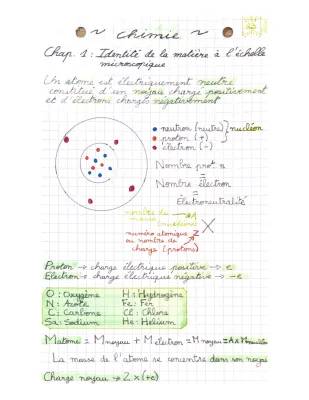 ~ chimie ~
Chap. 1 : Identité de la matière à l'échelle
microscopique
Un atome est électriquement neutre
constitué d'un noyau chargé positivement
et d'électrons chargés négativement
neutron (neutre) } nucléon
proton (+)
électron (-)
Nombre prot n
=
Nombre électron
=
Electroneutralité
nombre de
masse
A
(nucléons)
X
numéro atomique Z
ou nombre de
charge (protons)
Proton → charge électrique positive → e
Electron → charge électrique négative → -e
O : Oxygène H : Hydrogène
N : Azote Fe : Fer
C : Carbone Cl : Chlore
Sa : Sodium He : Hélium
Matome = Mnoyau + Mélectron = Mnoyau = A x Mnucléon
La masse de l'atome se concentre dans son noyau
Charge noyau → Z x (+e)